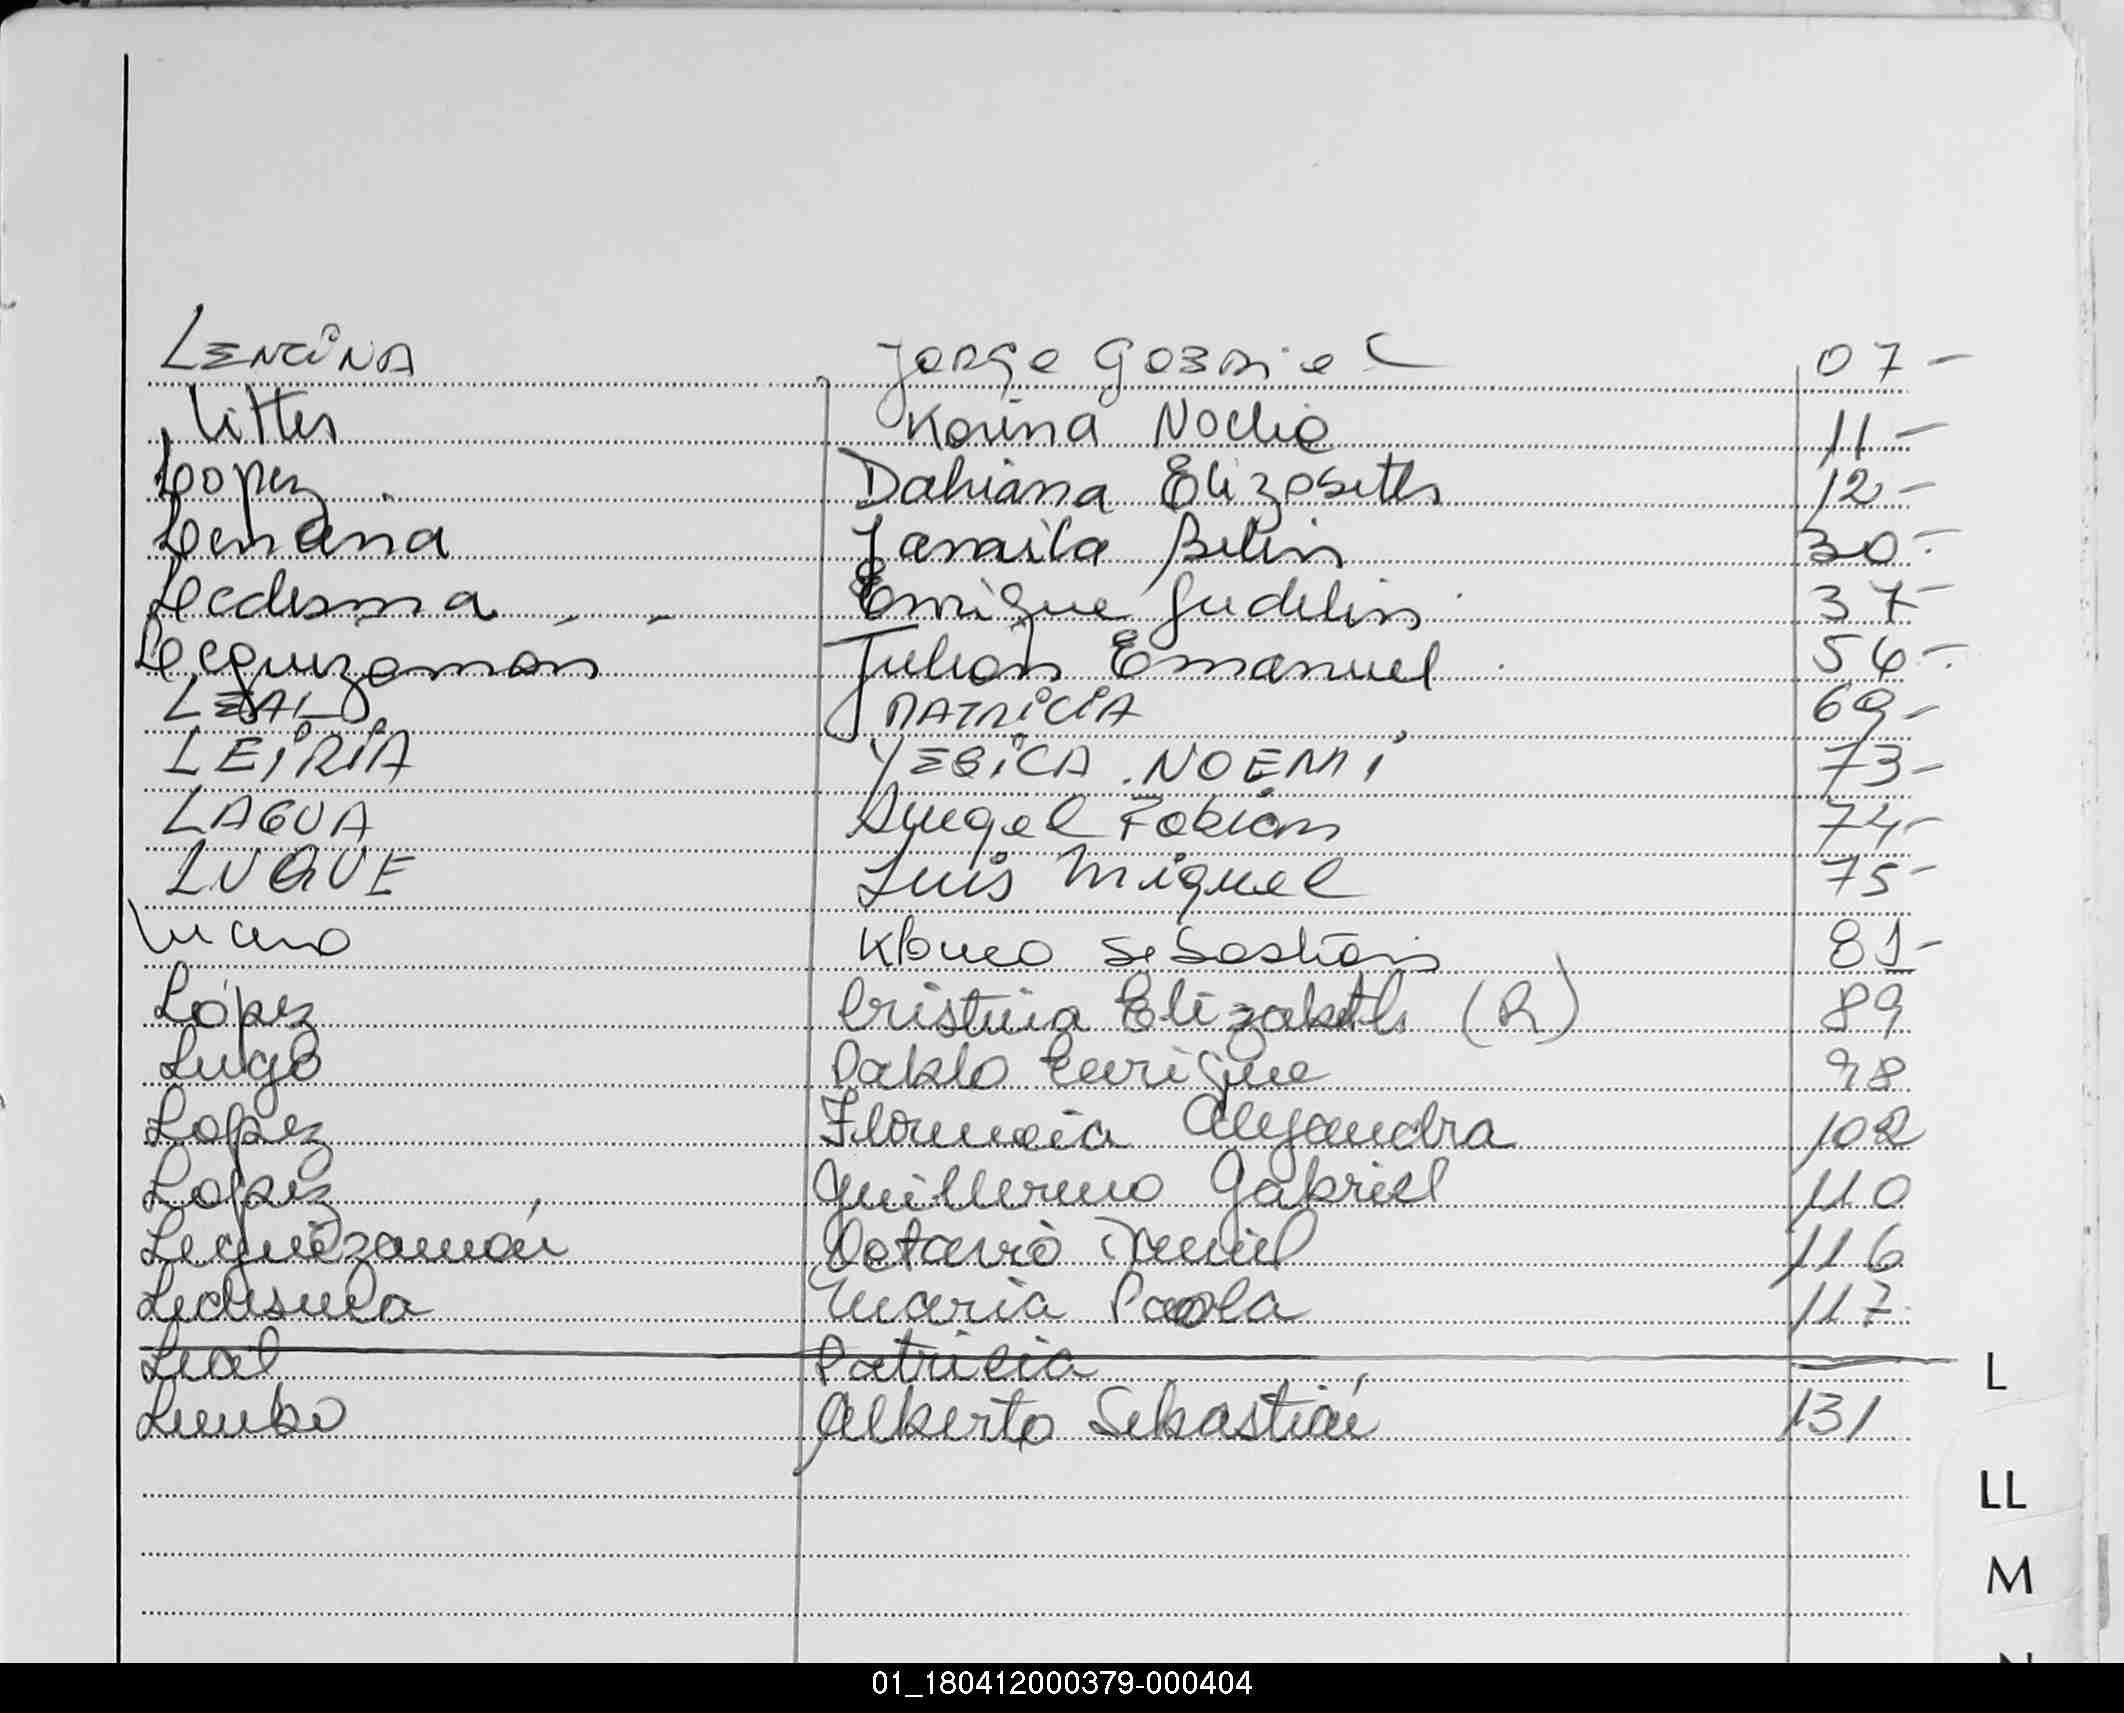 LENCINA Jorge Gabriel 07-
Litter Karina Noelia 11-
Lopez Dahiana Elizabeth 12-
Lemana Jamila Belen 30-
Ledesma Enrique Gudelin 37-
Leguizamón Julian Emanuel 54-
LEAL PATRICIA 69-
LEIRIA YESICA NOEMÍ 73-
LAGUA Angel Fabián 74-
LUQUE Luis Miguel 75-
Sebastián 81-
López Cristina Elizabeth (R) 89
Lugo Pablo Enrique 98
Lopez Florencia Alejandra 102
Lopez Guillermo Gabriel 110
Leguizamón Octavio Daniel 116
Ledesma Maria Paola 117
Leal Patricia
Alberto Sebastián 131
L
LL
M
01_180412000379-000404